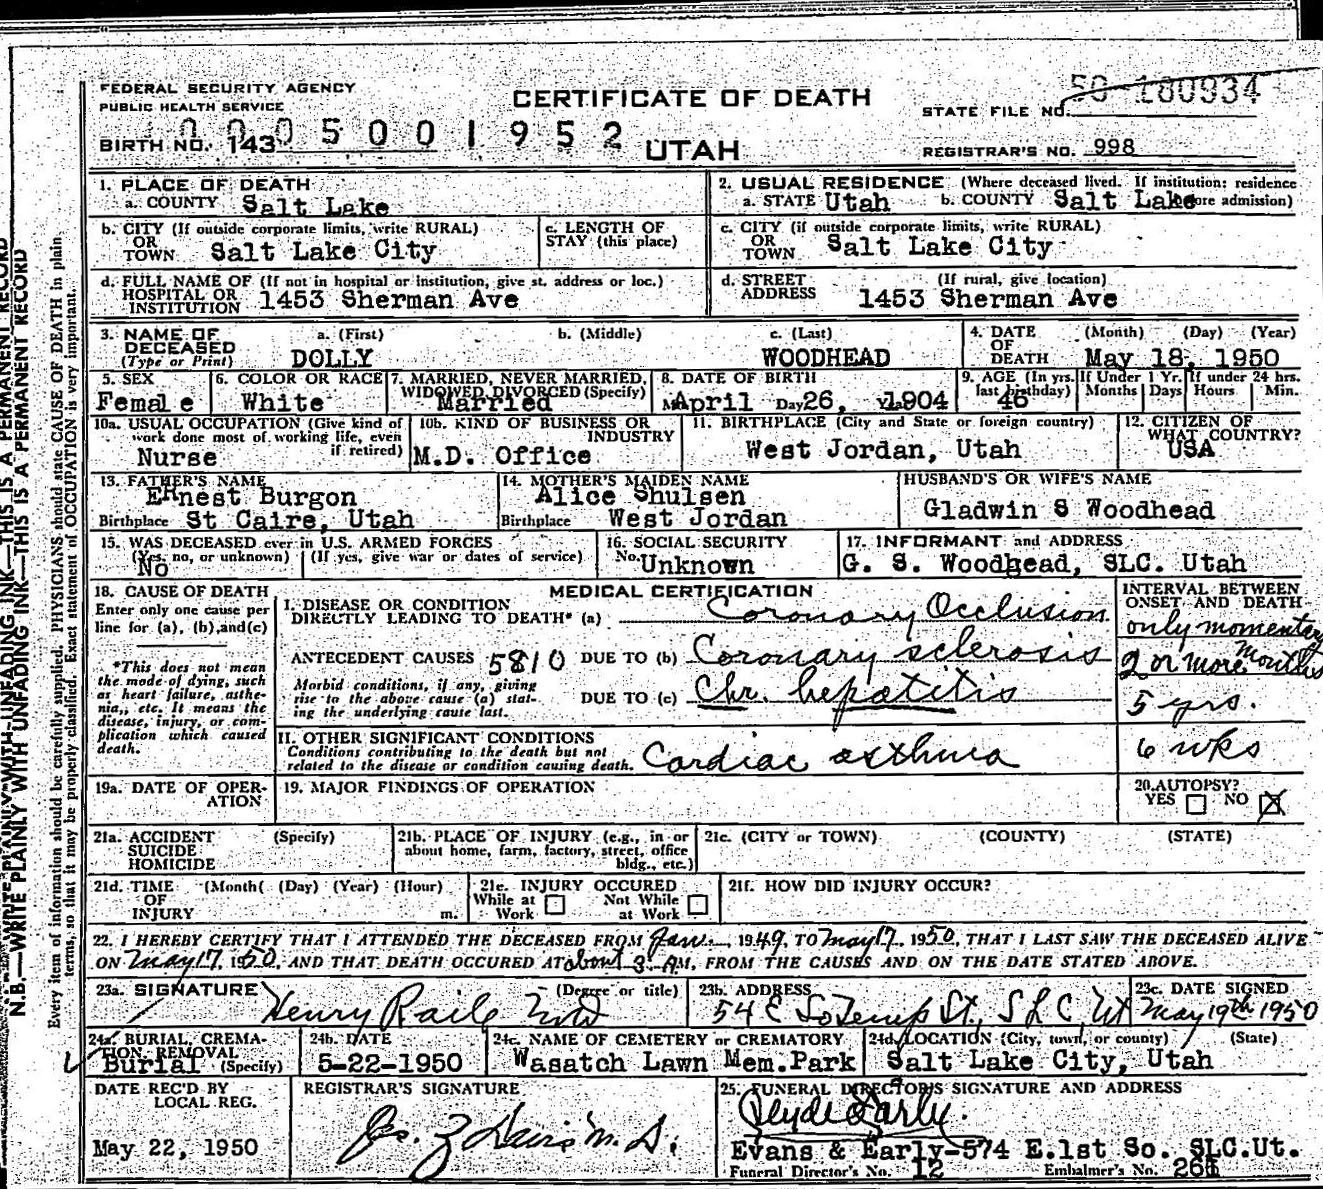 FEDERAL SECURITY AGENCY
PUBLIC HEALTH SERVICE
CERTIFICATE OF DEATH
UTAH
BIRTH NO. 143
00005001952
STATE FILE NO. 50 180934
REGISTRAR'S NO. 998
1. PLACE OF DEATH
a. COUNTY Salt Lake
2. USUAL RESIDENCE (Where deceased lived. If institution: residence
a. STATE Utah b. COUNTY Salt Lake ore admission)
b. CITY (If outside corporate limits, write RURAL)
OR
TOWN Salt Lake City
c. LENGTH OF
STAY (this place)
c. CITY (if outside corporate limits, write RURAL)
OR
TOWN Salt Lake City
d. FULL NAME OF (If not in hospital or institution, give st. address or loc.)
HOSPITAL OR
INSTITUTION 1453 Sherman Ave
d. STREET (If rural, give location)
ADDRESS 1453 Sherman Ave
3. NAME OF DECEASED (Type or Print)
a. (First) b. (Middle) c. (Last)
DOLLY WOODHEAD
4. DATE OF DEATH (Month) (Day) (Year)
May 18, 1950
5. SEX
Female
6. COLOR OR RACE
White
7. MARRIED, NEVER MARRIED,
WIDOWED DIVORCED (Specify)
Married
8. DATE OF BIRTH
April Day 26, 1904
9. AGE (In yrs. last birthday)
46
If Under 1 Yr.
Months Days
If under 24 hrs.
Hours Min.
10a. USUAL OCCUPATION (Give kind of
work done most of working life, even
if retired)
Nurse
10b. KIND OF BUSINESS OR
INDUSTRY
M.D. Office
11. BIRTHPLACE (City and State or foreign country)
West Jordan, Utah
12. CITIZEN OF
WHAT COUNTRY?
USA
13. FATHER'S NAME
ERnest Burgon
Birthplace St Caire, Utah
14. MOTHER'S MAIDEN NAME
Alice Shulsen
Birthplace West Jordan
HUSBAND'S OR WIFE'S NAME
Gladwin S Woodhead
15. WAS DECEASED ever in U.S. ARMED FORCES
(Yes, no, or unknown) (If yes, give war or dates of service)
No
16. SOCIAL SECURITY
No. Unknown
17. INFORMANT and ADDRESS
G. S. Woodhead, SLC. Utah
18. CAUSE OF DEATH
Enter only one cause per
line for (a), (b), and (c)
*This does not mean
the mode of dying, such
as heart failure, asthe-
nia,, etc. It means the
disease, injury, or com-
plication which caused
death.
MEDICAL CERTIFICATION
I. DISEASE OR CONDITION
DIRECTLY LEADING TO DEATH* (a) Coronary Occlusion
ANTECEDENT CAUSES 5810 DUE TO (b) Coronary sclerosis
Morbid conditions, if any, giving
rise to the above cause (a) stat-
ing the underlying cause last.
DUE TO (c) Chr. hepatitis
II. OTHER SIGNIFICANT CONDITIONS
Conditions contributing to the death but not
related to the disease or condition causing death. Cardiac asthma
INTERVAL BETWEEN
ONSET AND DEATH
only momentary
2 or more months
5 yrs.
6 wks
19a. DATE OF OPER-
ATION
19. MAJOR FINDINGS OF OPERATION
20. AUTOPSY?
YES NO X
21a. ACCIDENT (Specify)
SUICIDE
HOMICIDE
21b. PLACE OF INJURY (e.g., in or
about home, farm, factory, street, office
bldg., etc.)
21c. (CITY or TOWN) (COUNTY) (STATE)
21d. TIME (Month( (Day) (Year) (Hour)
OF
INJURY m.
21e. INJURY OCCURED
While at Work Not While at Work
21f. HOW DID INJURY OCCUR?
22. I HEREBY CERTIFY THAT I ATTENDED THE DECEASED FROM Jan., 1949, TO May 17, 1950, THAT I LAST SAW THE DECEASED ALIVE
ON May 17, 1950, AND THAT DEATH OCCURED AT about 3 A.M, FROM THE CAUSES AND ON THE DATE STATED ABOVE.
23a. SIGNATURE (Degree or title)
Henry Raile MD
23b. ADDRESS
54 E So Temp St., S L C, Ut
23c. DATE SIGNED
May 19th 1950
24a. BURIAL, CREMA-
TION, REMOVAL
Burial (Specify)
24b. DATE
5-22-1950
24c. NAME OF CEMETERY or CREMATORY
Wasatch Lawn Mem.Park
24d. LOCATION (City, town, or county) (State)
Salt Lake City, Utah
DATE REC'D BY
LOCAL REG.
May 22, 1950
REGISTRAR'S SIGNATURE
25. FUNERAL DIRECTOR'S SIGNATURE AND ADDRESS
Clyde Early.
Evans & Early-574 E.1st So. SLC.Ut.
Funeral Director's No. 12 Embalmer's No.
N.B.—WRITE PLAINLY WITH UNFADING INK—THIS IS A PERMANENT RECORD
Every item of information should be carefully supplied. PHYSICIANS should state CAUSE OF DEATH in plain
terms, so that it may be properly classified. Exact statement of OCCUPATION is very important.